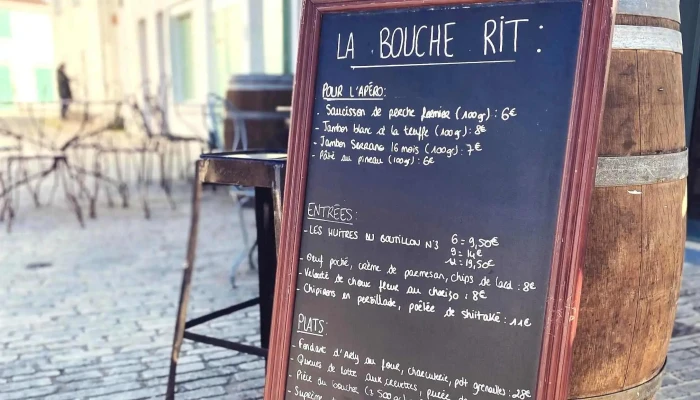 LA BOUCHE RIT :
POUR L'APÉRO :
- Saucisson de porche fermier (100gr) : 6€
- Jambon blanc à la truffe (100gr) : 8€
- Jambon Serrano 16 mois (100gr) : 7€
- Pâté au pineau (100gr) : 6€
ENTRÉES :
- LES HUITRES DU BOUTILLON N°3 6 = 9,50€
9 = 14€
12 = 19,50€
- Oeuf poché, crème de parmesan, chips de lard : 8€
- Velouté de choux fleur au chorizo : 8€
- Chipirons en persillade, poêlée de shiitaké : 11€
PLATS
- Fondant d'Ariy au four, charcuterie, pdt grenailles : 28€
- Queues de lotte aux crevettes, purée de
- Pièce du boucher (± 500gr)
- Suprême